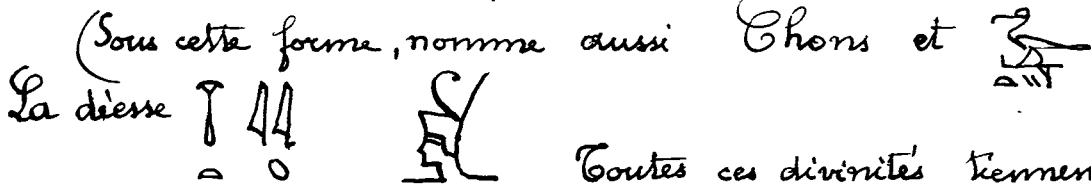 (Sous cette forme, nomme aussi Chons et
La déesse
Toutes ces divinités tiennen